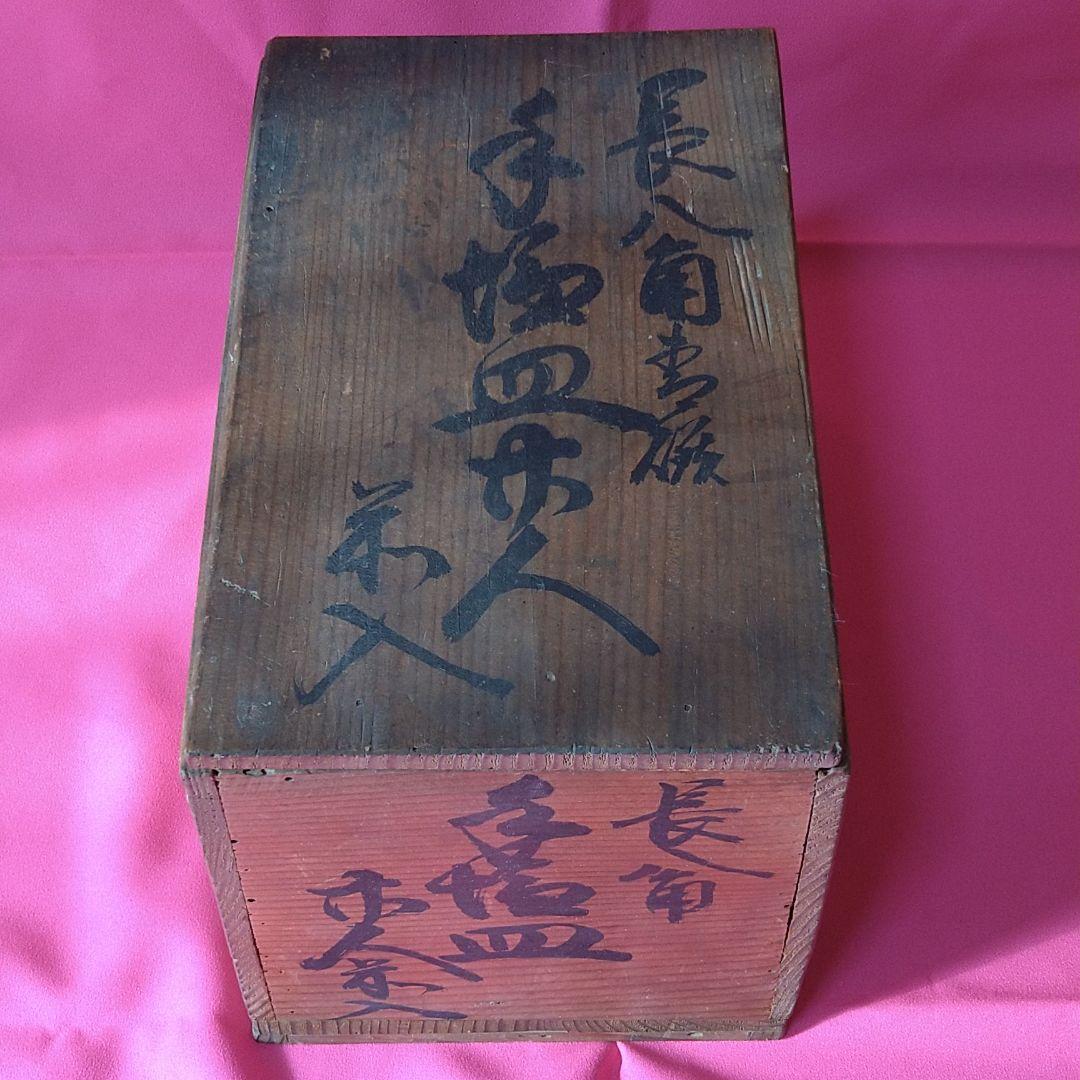 長八角
手塩皿廿人
前入
長八角
手塩皿
廿人前入